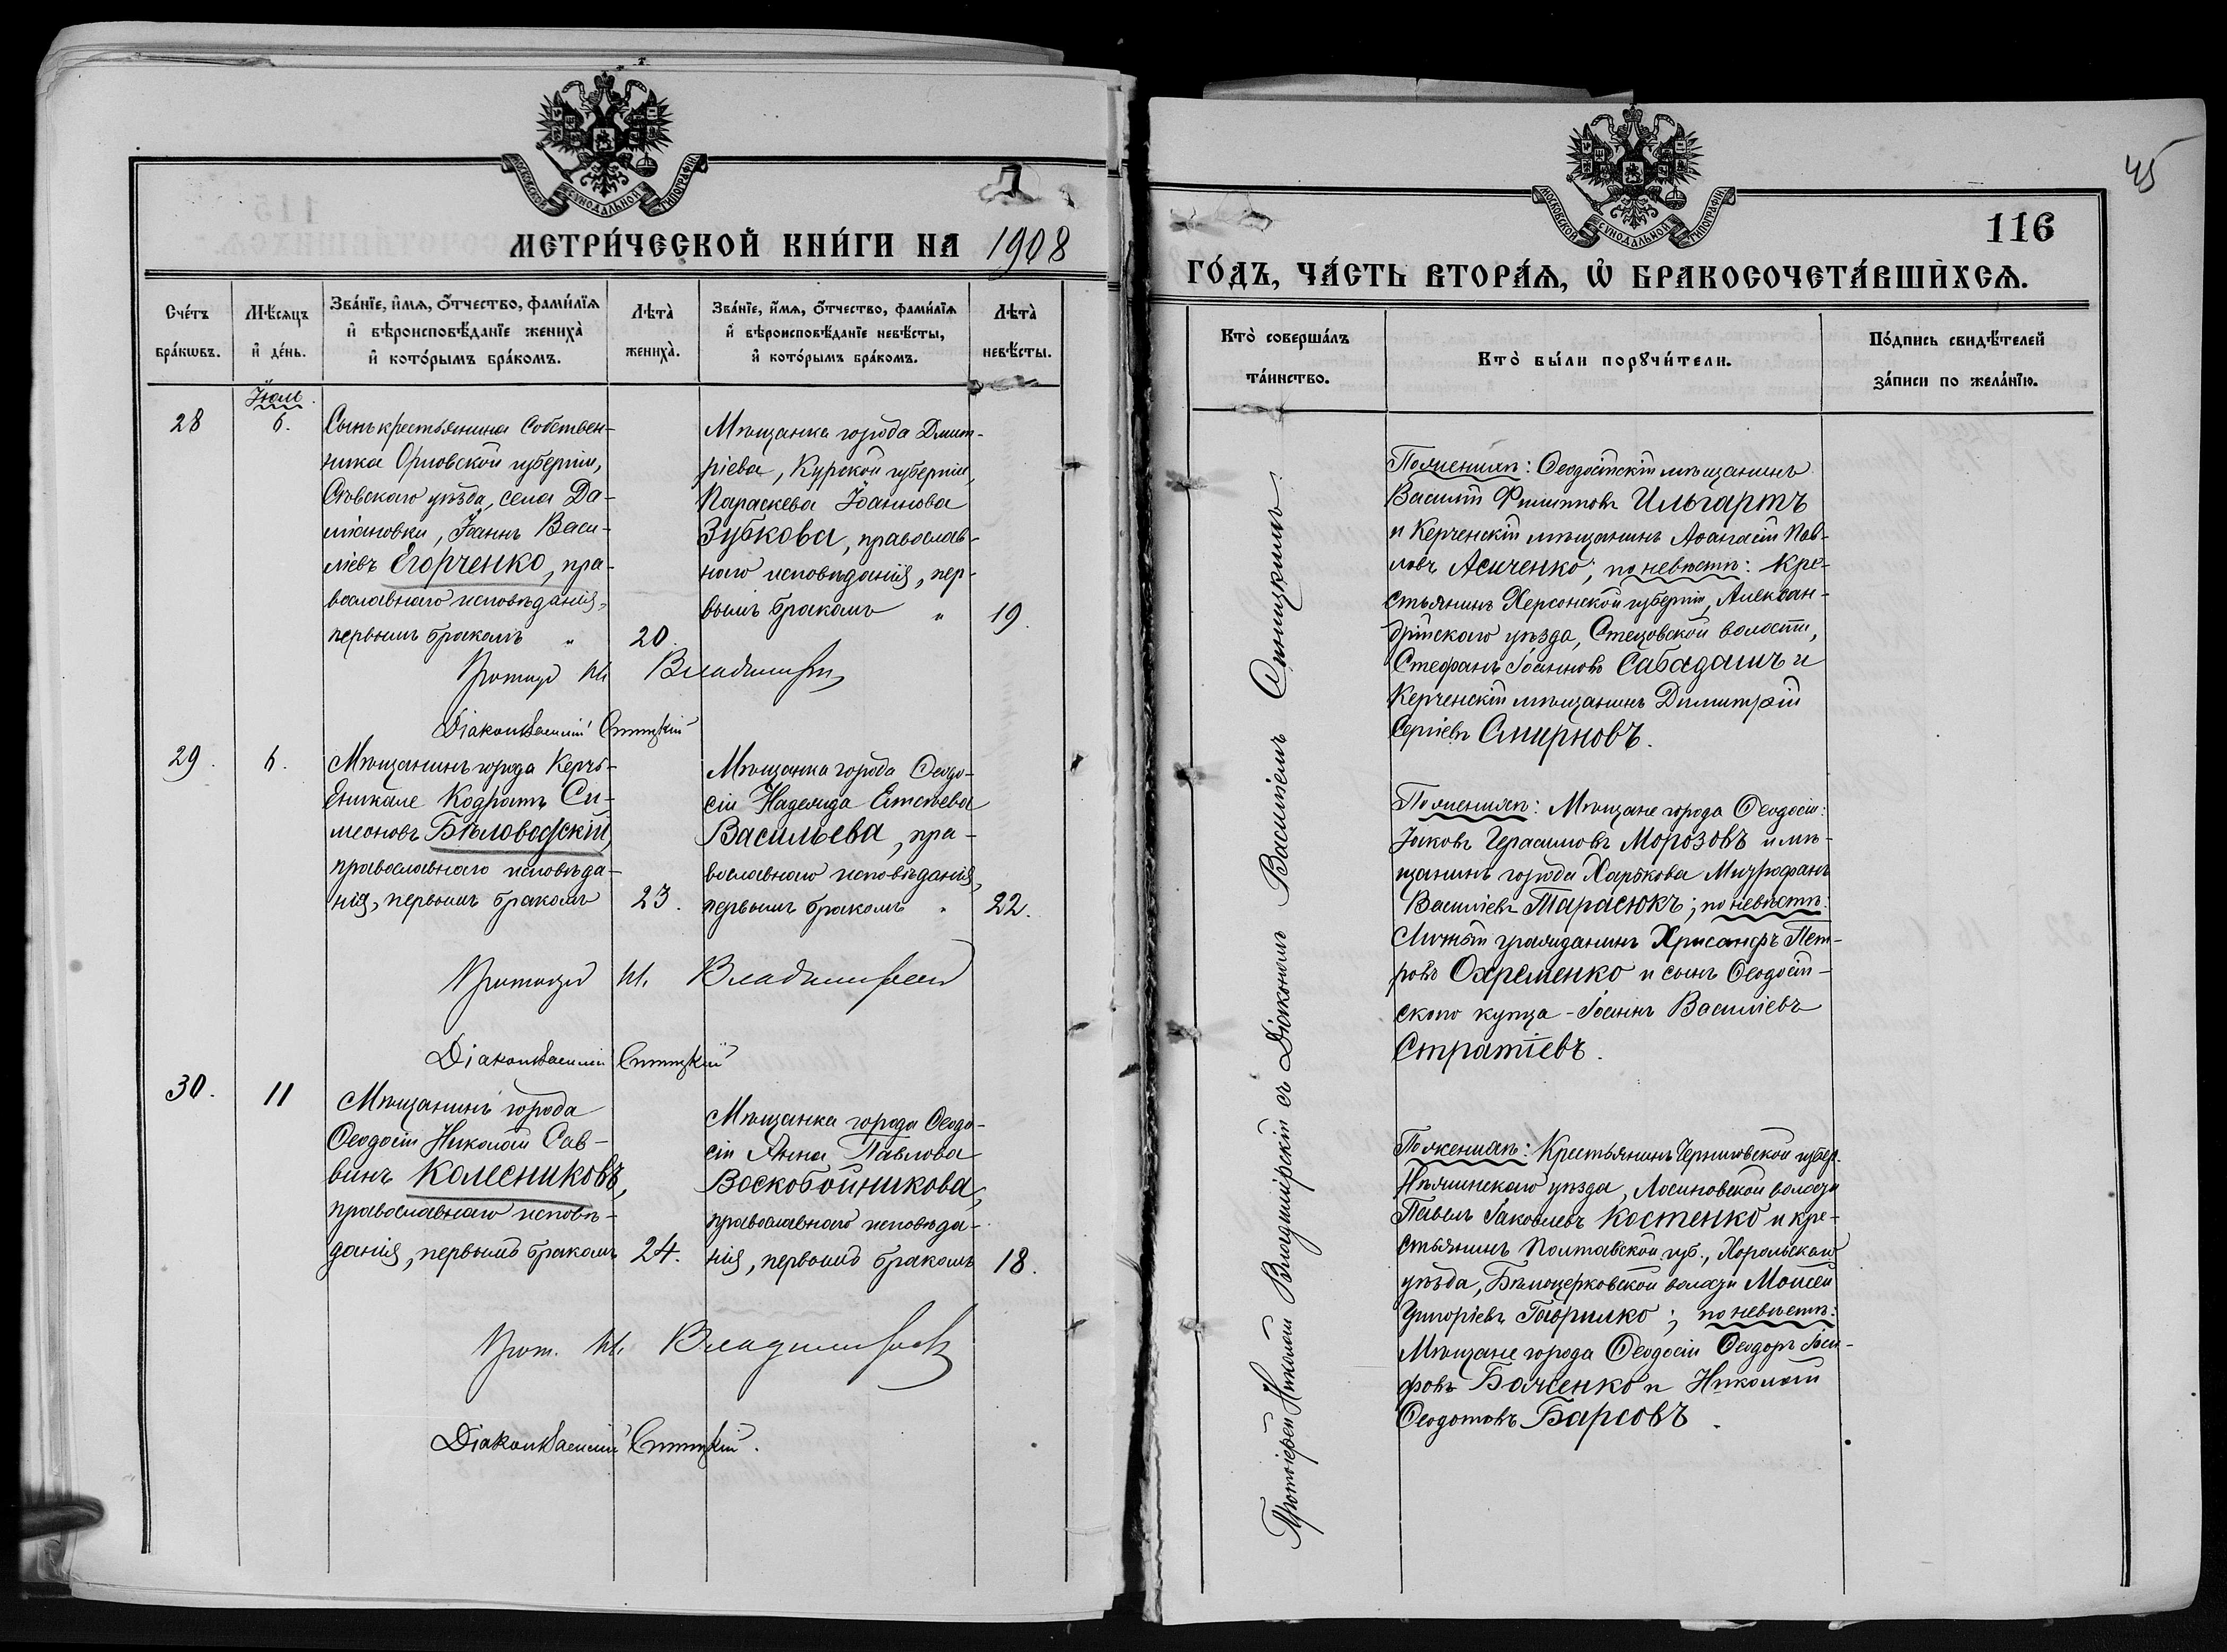 МОСКОВСКОЙ СѴНОДАЛЬНОЙ ТИПОГРАФІИ
МЕТРИ́ЧЕСКОЙ КНИ́ГИ НА 1908
Сче́тъ бра́кωвъ.
Мѣ́сяцъ и҆ де́нь.
Зва́нїе, и҆́мя, ѻ҆́тчество, фами́лїя
и҆ вѣроисповѣ́данїе жениха̀
и҆ кото́рымъ бра́комъ.
Лѣта̀ жениха̀.
Зва́нїе, и҆́мя, ѻ҆́тчество, фами́лїя
и҆ вѣроисповѣ́данїе невѣ́сты,
и҆ кото́рымъ бра́комъ.
Лѣта̀ невѣ́сты.
Іюль.
28
6.
Сынъ крестьянина собствен-
ника Орловской губерніи,
Сѣвскаго уѣзда, села Да-
міановки, Іоаннъ Васи-
ліевъ Егорченко, пра-
вославнаго исповѣданія,
первымъ бракомъ "
20.
Мѣщанка города Дмит-
ріева, Курской губерніи,
Параскева Іоаннова
Зубкова, православ-
наго исповѣданія, пер-
вымъ бракомъ "
19.
Протоіер Н. Владимірскій
Діаконъ Василій Синицкій
29.
6.
Мѣщанинъ города Керчь-
Еникале Кодратъ Си-
меоновъ Бѣловодскій,
православнаго исповѣда-
нія, первымъ бракомъ
23.
Мѣщанка города Ѳеодо-
сіи Надежда Евсѣева
Васильева, пра-
вославнаго исповѣданія,
первымъ бракомъ "
22.
Протоіер Н. Владимірскій
Діаконъ Василій Синицкій
30.
11
Мѣщанинъ города
Ѳеодосіи Николай Сав-
винъ Колесниковъ,
православнаго исповѣ-
данія, первымъ бракомъ
24.
Мѣщанка города Ѳеодо-
сіи Анна Павлова
Воскобойникова,
православнаго исповѣда-
нія, первымъ бракомъ
18.
Прот. Н. Владимірскій
Діаконъ Василій Синицкій.
45
МОСКОВСКОЙ СѴНОДАЛЬНОЙ ТИПОГРАФІИ
116
ГО́ДЪ, ЧА́СТЬ ВТОРА́Ѧ, Ѡ҆ БРАКОСОЧЕТА́ВШИХСѦ.
Кто̀ соверша́лъ
та́инство.
Кто̀ бы́ли порꙋчи́тели.
По́дпись свидѣ́телей
за́писи по жела́нїю.
Протоіерей Николай Владимірскій съ Діакономъ Василіемъ Синицкимъ.
По женихѣ: Ѳеодосійскій мѣщанинъ
Василій Филипповъ Ильгартъ
и Керченскій мѣщанинъ Аѳанасій Пав-
ловъ Асиченко; по невѣстѣ: Кре-
стьянинъ Херсонской губерніи, Алексан-
дрійскаго уѣзда, Стецовской волости,
Стефанъ Іоанновъ Сабадашъ и
Керченскій мѣщанинъ Димитрій
Сергіевъ Смирновъ.
По женихѣ: Мѣщане города Ѳеодосіи:
Іаковъ Герасимовъ Морозовъ и мѣ-
щанинъ города Харькова Митрофанъ
Василіевъ Тарасюкъ; по невѣстѣ:
Личный гражданинъ Хрисанфъ Пет-
ровъ Охременко и сынъ Ѳеодосій-
скаго купца - Іоаннъ Василіевъ
Стратіевъ.
По женихѣ: Крестьянинъ Черниговской губер.
Нѣжинскаго уѣзда, Лосиновской волости
Павелъ Іаковлевъ Костенко и кре-
стьянинъ Полтавской губ., Хорольскаго
уѣзда, Бѣлоцерковской волости Моисей
Григоріевъ Гаврилко; по невѣстѣ:
Мѣщане города Ѳеодосіи Ѳеодоръ Іоси-
фовъ Баженко и Николай
Ѳеодотовъ Барсовъ.